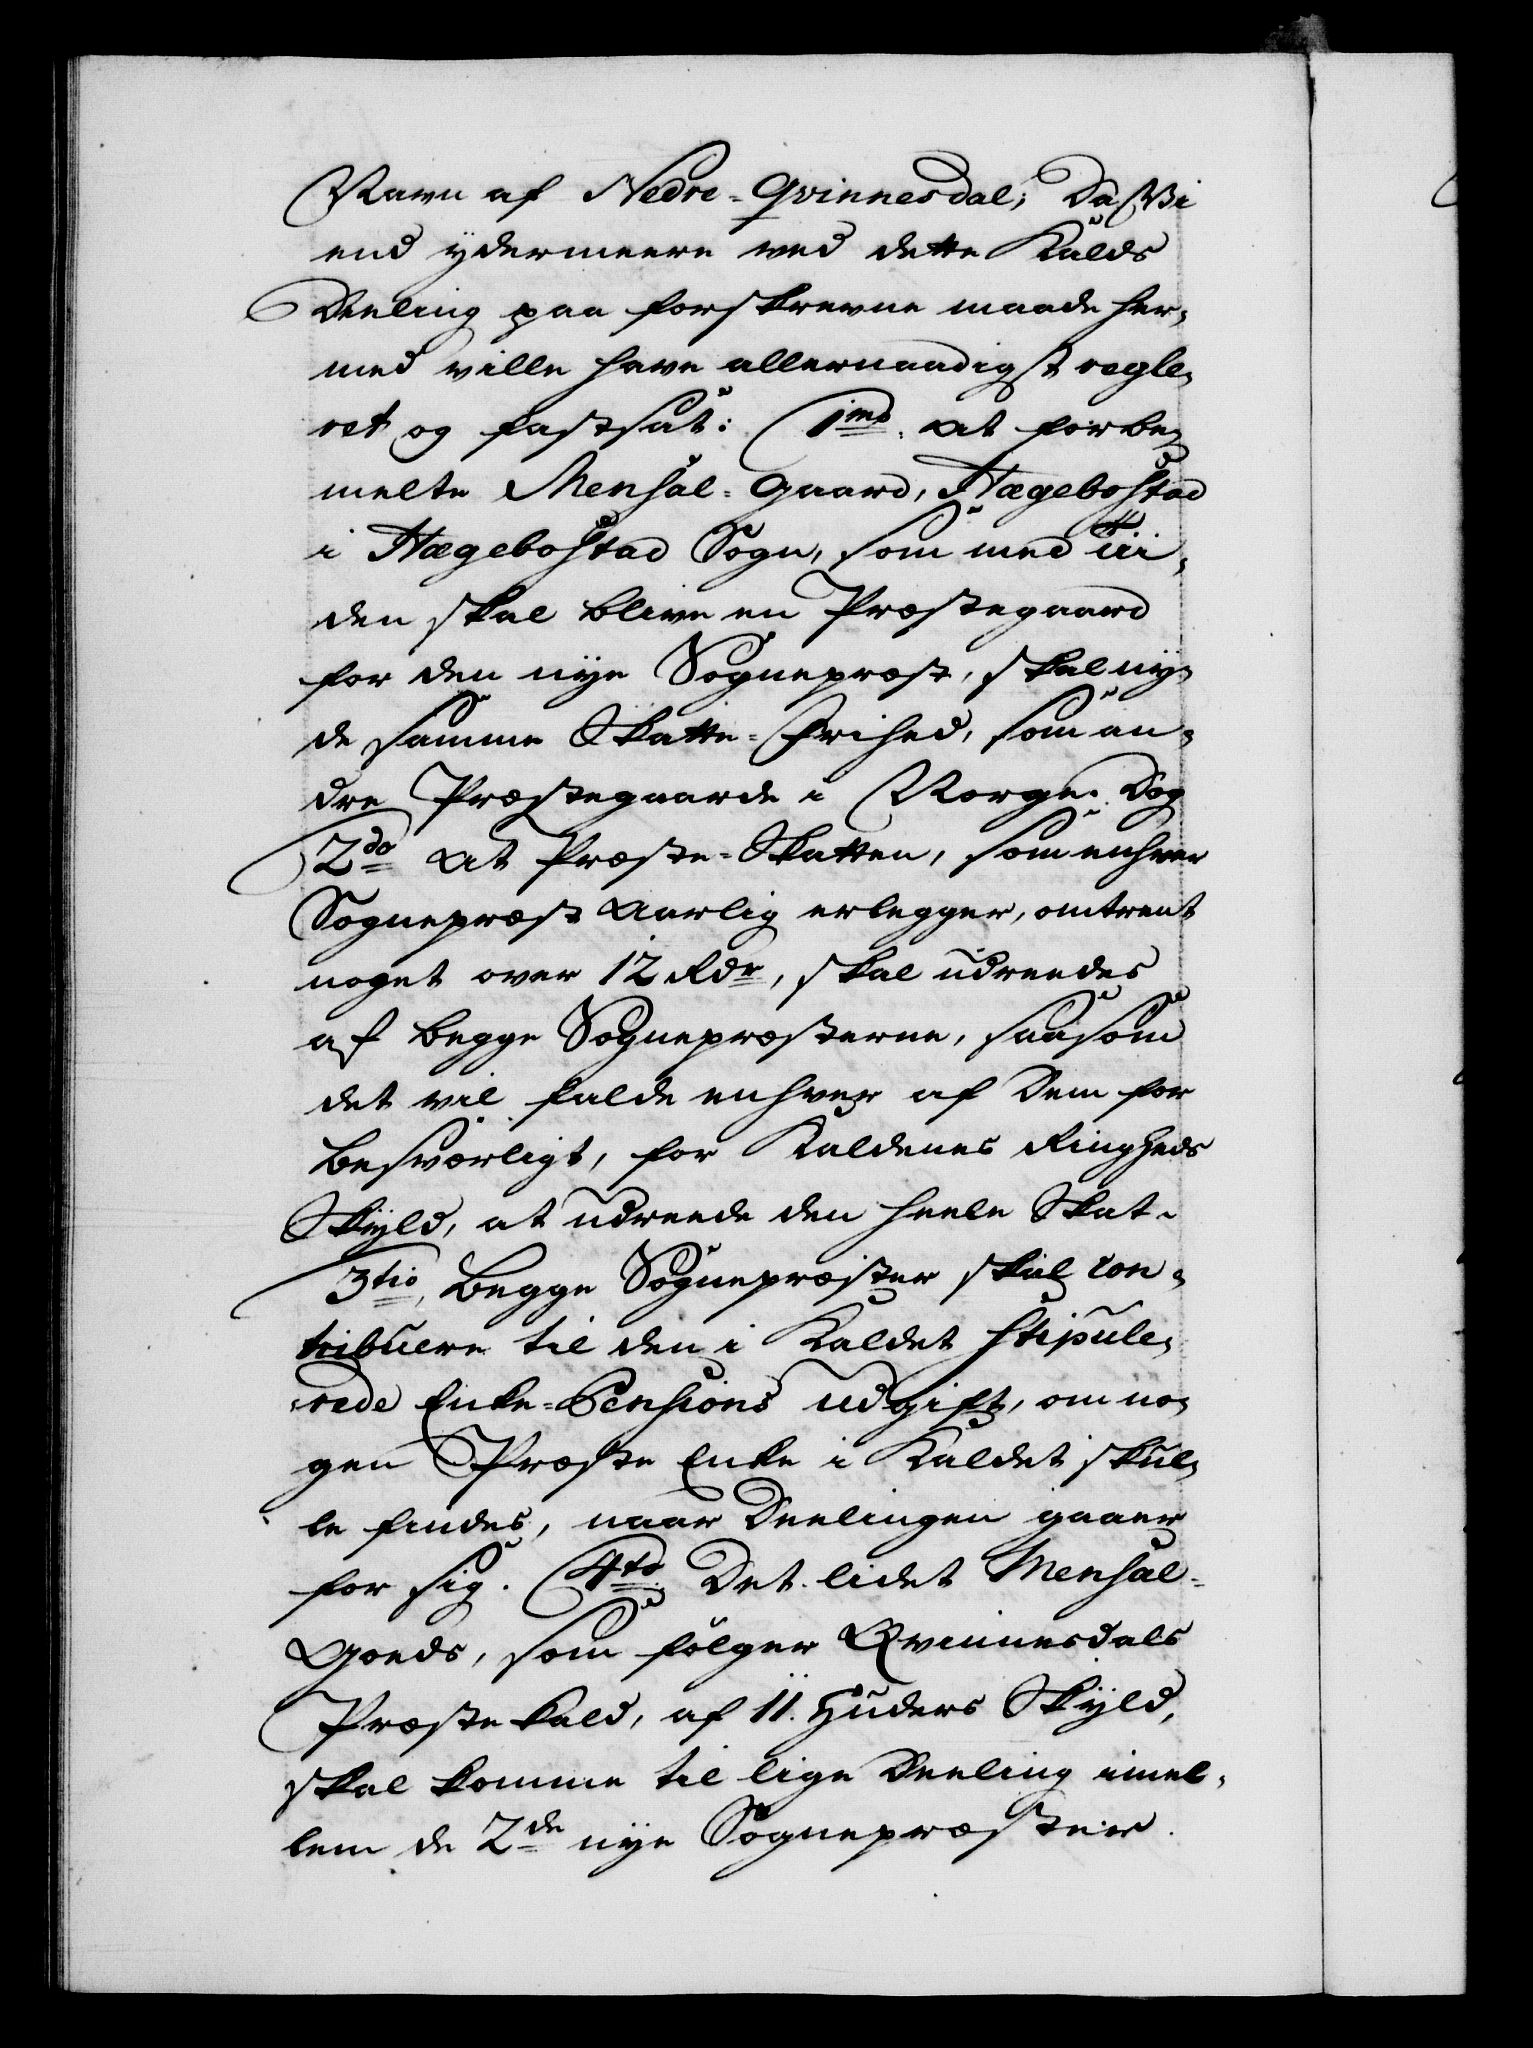 Navn af Nedre-Qvinnesdal; Da Vi
end ydermeere ved dette Kalds
Deeling paa forskrevne maade her-
med ville have allernaadigst regle-
ret og fastsat: 1mo. At forbe-
melte Mensal-Gaard, Hægebostad
i Hægebostad Sogn, som med Tii-
den skal blive en Præstegaard
for den nye Sognepræst, skal ny-
de samme Skatte-Frihed, som an-
dre Præstegaarde i Norge. Dog
2do At Præste-Skatten, som enhver
Sognepræst Aarlig erlegger, omtrent
noget over 12 Rdr, skal udreedes
af begge Sognepræsterne, saasom
det vil falde enhver af Dem for
besværligt, for Kaldenes Ringheds
Skyld, at udreede den heele Skat.
3tio, Begge Sognepræster skal con-
tribuere til den i Kaldet stipule-
rede Enke-Pensions Udgift, om no-
gen Præste Enke i Kaldet skul-
le findes, naar Deelingen gaaer
for sig. 4to. Det lidet Mensal-
Goeds, som følger Qvinnesdals
Præstekald, af 11. Huders Skyld,
skal komme til lige Deeling imel-
lem de 2de nye Sognepræster.